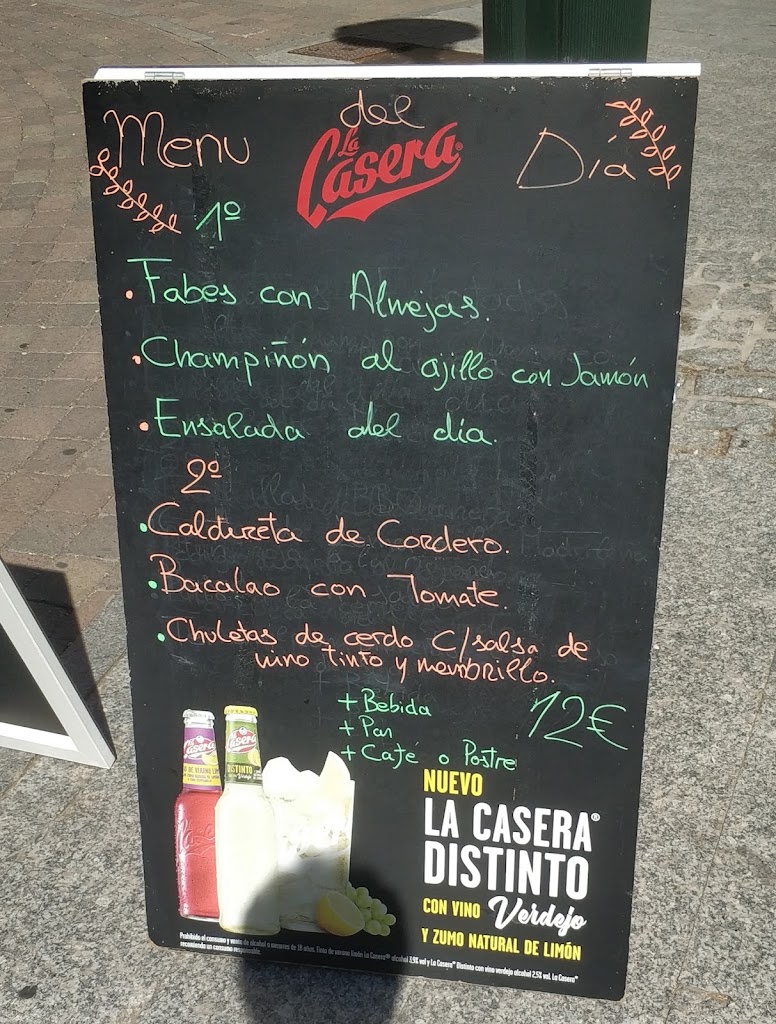 Menu del Día
La Casera®
1º
· Fabes con Almejas.
· Champiñón al ajillo con Jamón
· Ensalada del día.
2º
· Caldureta de Cordero.
· Bacalao con Tomate.
· Chuletas de cerdo C/salsa de
vino tinto y membrillo.
+ Bebida
+ Pan
+ Café o Postre
12€
La Casera
La Casera
DISTINTO
NUEVO
LA CASERA®
DISTINTO
CON VINO Verdejo
Y ZUMO NATURAL DE LIMÓN
Prohibido el consumo y venta de alcohol a menores de 18 años. Tinto de verano limón La Casera® alcohol 3,9% vol y La Casera® Distinto con vino verdejo alcohol 2,5% vol. La Casera®
recomienda un consumo responsable.